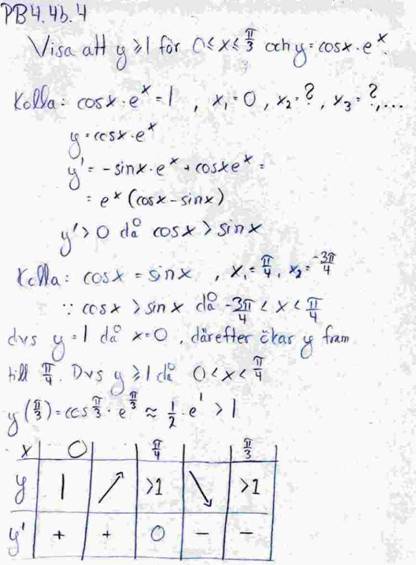 PB4.4b.4
Visa att y ≥ 1 för 0 ≤ x ≤ π/3 och y = cosx · e^x.
Kolla: cosx · e^x = 1 , x₁ = 0 , x₂ = ? , x₃ = ? , ...
y = cosx · e^x
y' = -sinx · e^x + cosx e^x =
= e^x (cosx - sinx)
y' > 0 då cosx > sinx
Kolla: cosx = sinx , x₁ = π/4 , x₂ = -3π/4
∵ cosx > sinx då -3π/4 < x < π/4
dvs y = 1 då x = 0 , därefter ökar y fram
till π/4. Dvs y ≥ 1 då 0 < x < π/4
y(π/3) = cos π/3 · e^(π/3) ≈ 1/2 · e^1 > 1
x 0 π/4 π/3
y 1 ↗ >1 ↘ >1
y' + + 0 - -